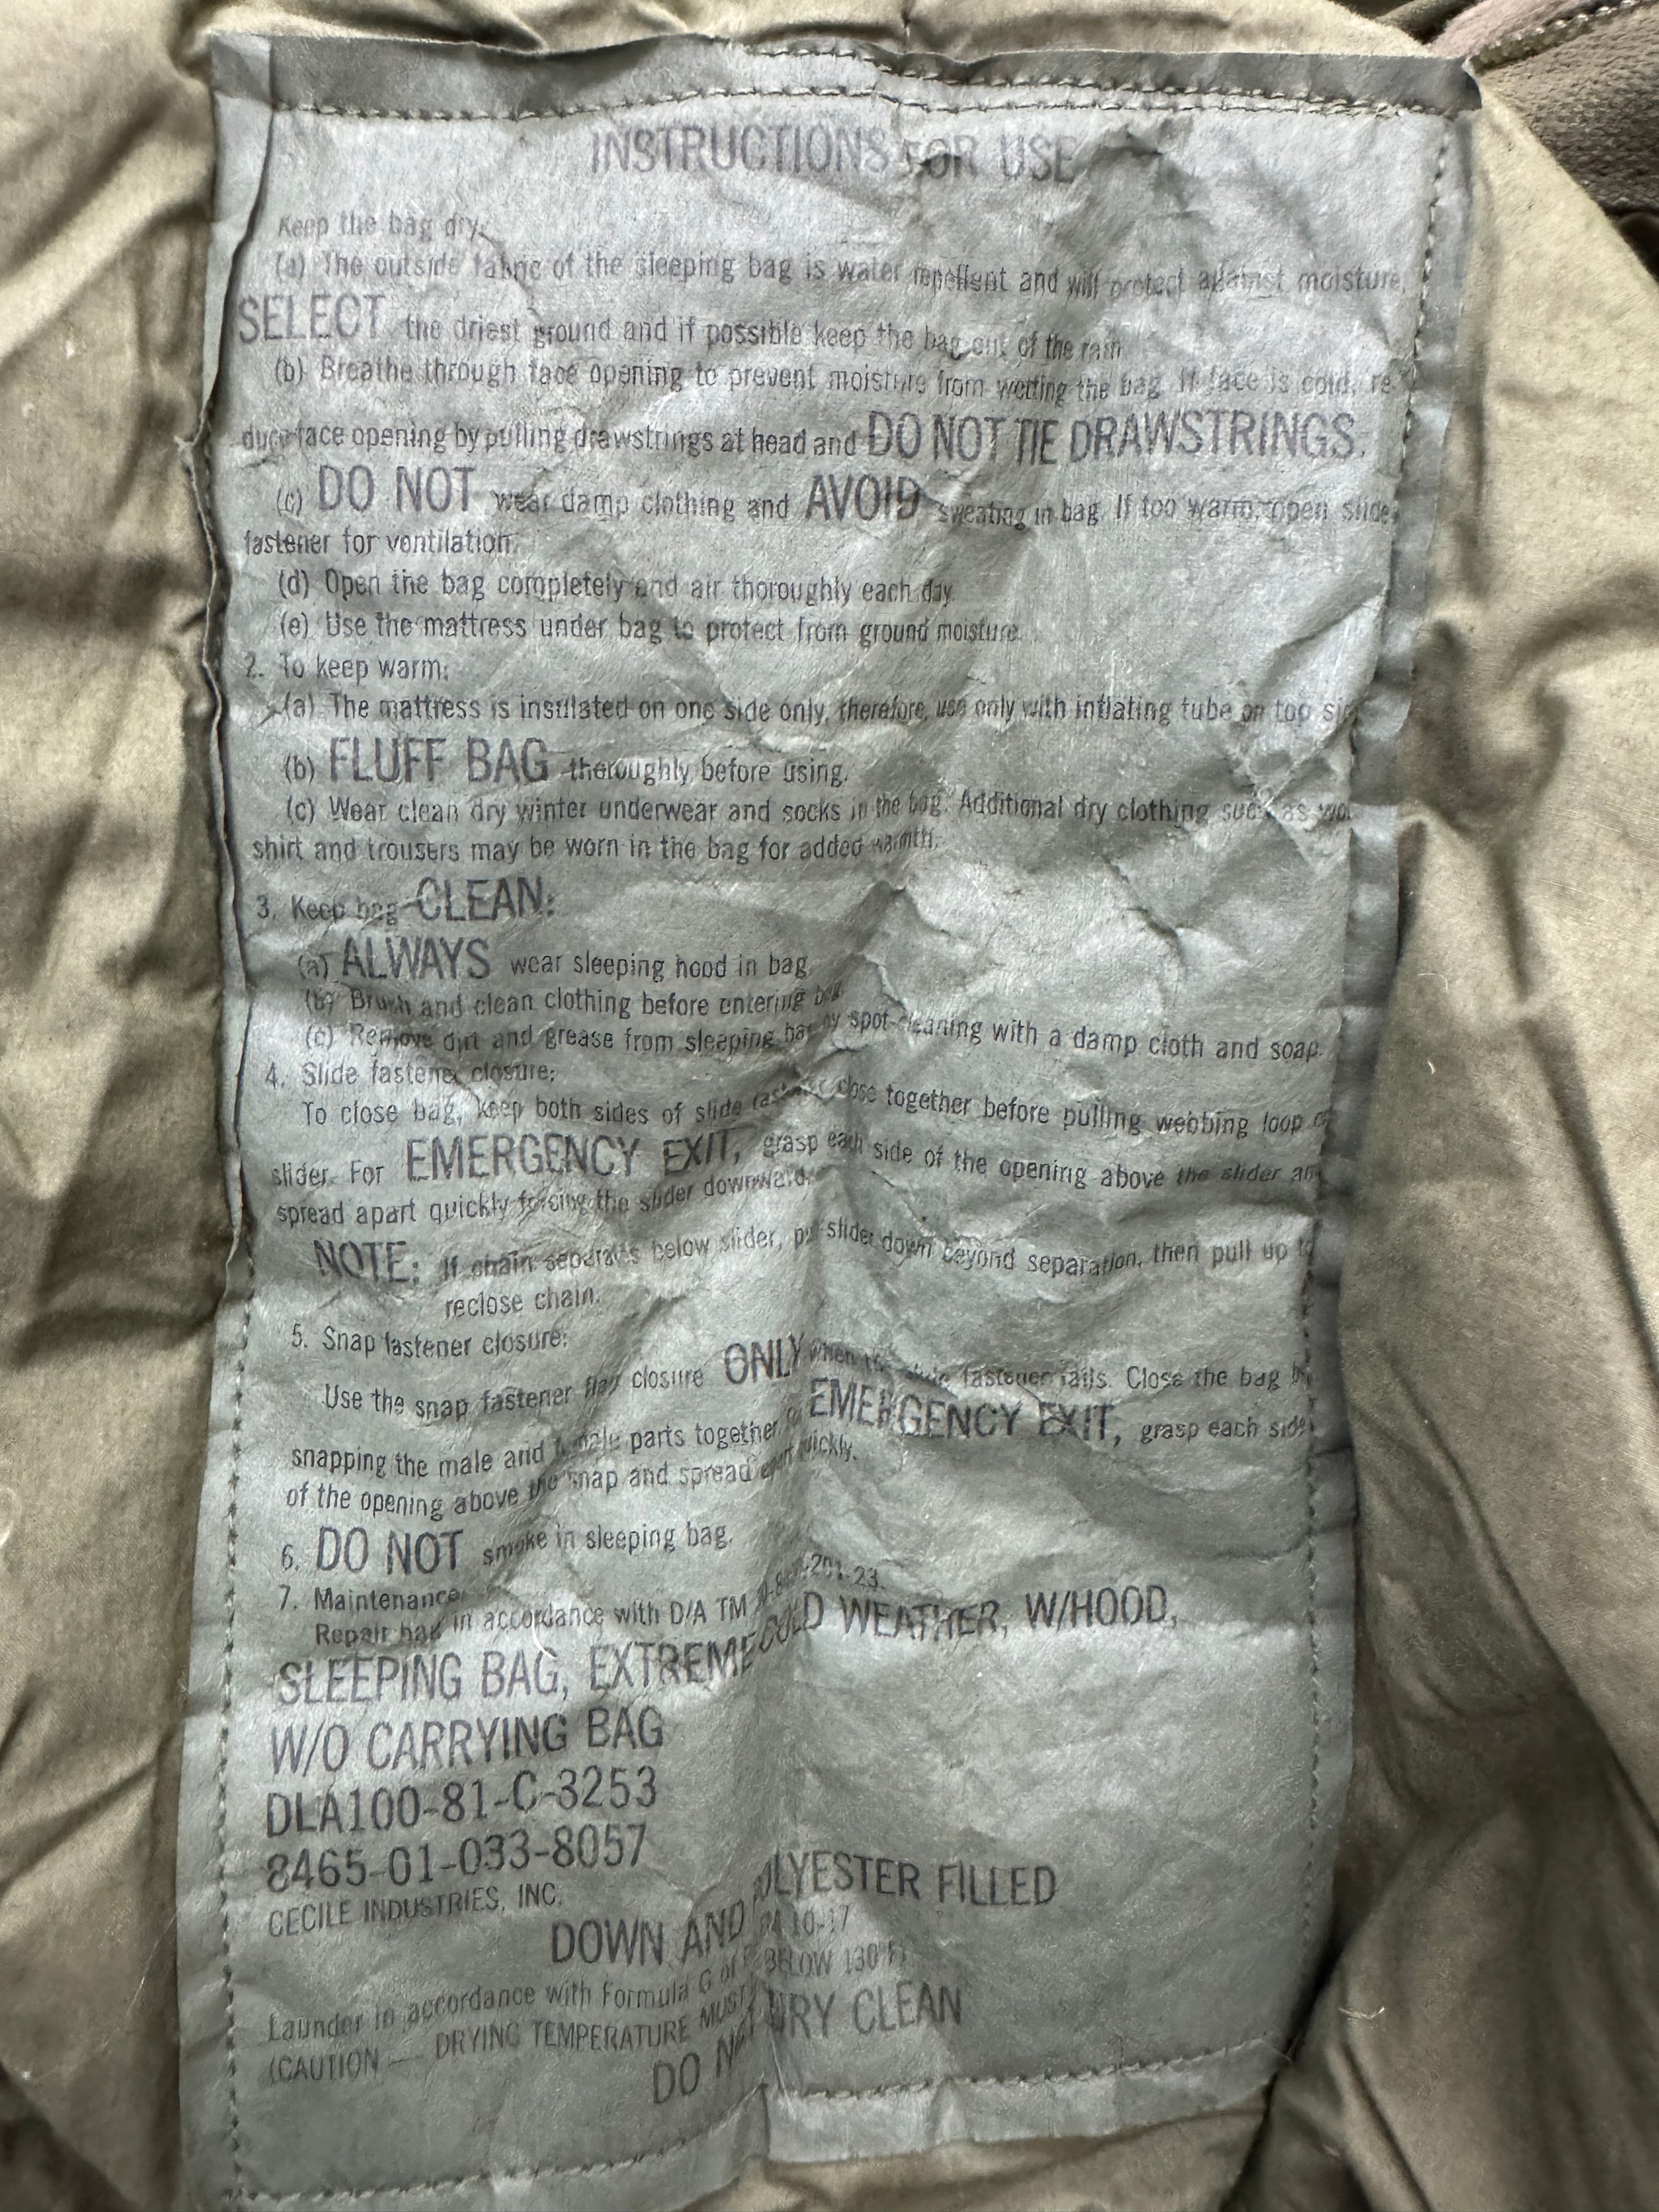 INSTRUCTIONS FOR USE
Keep the bag dry:
(a) The outside fabric of the sleeping bag is water repellent and will protect against moisture,
SELECT the driest ground and if possible keep the bag out of the rain
(b) Breathe through face opening to prevent moisture from wetting the bag. If face is cold, re-
duce face opening by pulling drawstrings at head and DO NOT TIE DRAWSTRINGS.
(c) DO NOT wear damp clothing and AVOID sweating in bag. If too warm, open slide
fastener for ventilation.
(d) Open the bag completely and air thoroughly each day.
(e) Use the mattress under bag to protect from ground moisture.
2. To keep warm:
(a) The mattress is insulated on one side only, therefore, use only with inflating tube on top
(b) FLUFF BAG thoroughly before using.
(c) Wear clean dry winter underwear and socks in the bag. Additional dry clothing such as
shirt and trousers may be worn in the bag for added warmth.
3. Keep bag CLEAN:
(a) ALWAYS wear sleeping hood in bag.
(b) Brush and clean clothing before entering bag.
(c) Remove dirt and grease from sleeping bag by spot-cleaning with a damp cloth and soap.
4. Slide fastener closure:
To close bag, keep both sides of slide fastener close together before pulling webbing loop
slider. For EMERGENCY EXIT, grasp each side of the opening above the slider and
spread apart quickly forcing the slider downward.
NOTE: If chain separates below slider, pull slider down beyond separation, then pull up to
reclose chain.
5. Snap fastener closure:
Use the snap fastener flap closure ONLY when the slide fastener fails. Close the bag by
snapping the male and female parts together. EMERGENCY EXIT, grasp each side
of the opening above the snap and spread apart quickly.
6. DO NOT smoke in sleeping bag.
7. Maintenance
Repair bag in accordance with D/A TM
SLEEPING BAG, EXTREME COLD WEATHER, W/HOOD,
W/O CARRYING BAG
DLA100-81-C-3253
8465-01-033-8057
CECILE INDUSTRIES, INC.
DOWN AND POLYESTER FILLED
Launder in accordance with Formula G of 10-17
(CAUTION — DRYING TEMPERATURE MUST BE BELOW 130°F)
DO NOT DRY CLEAN